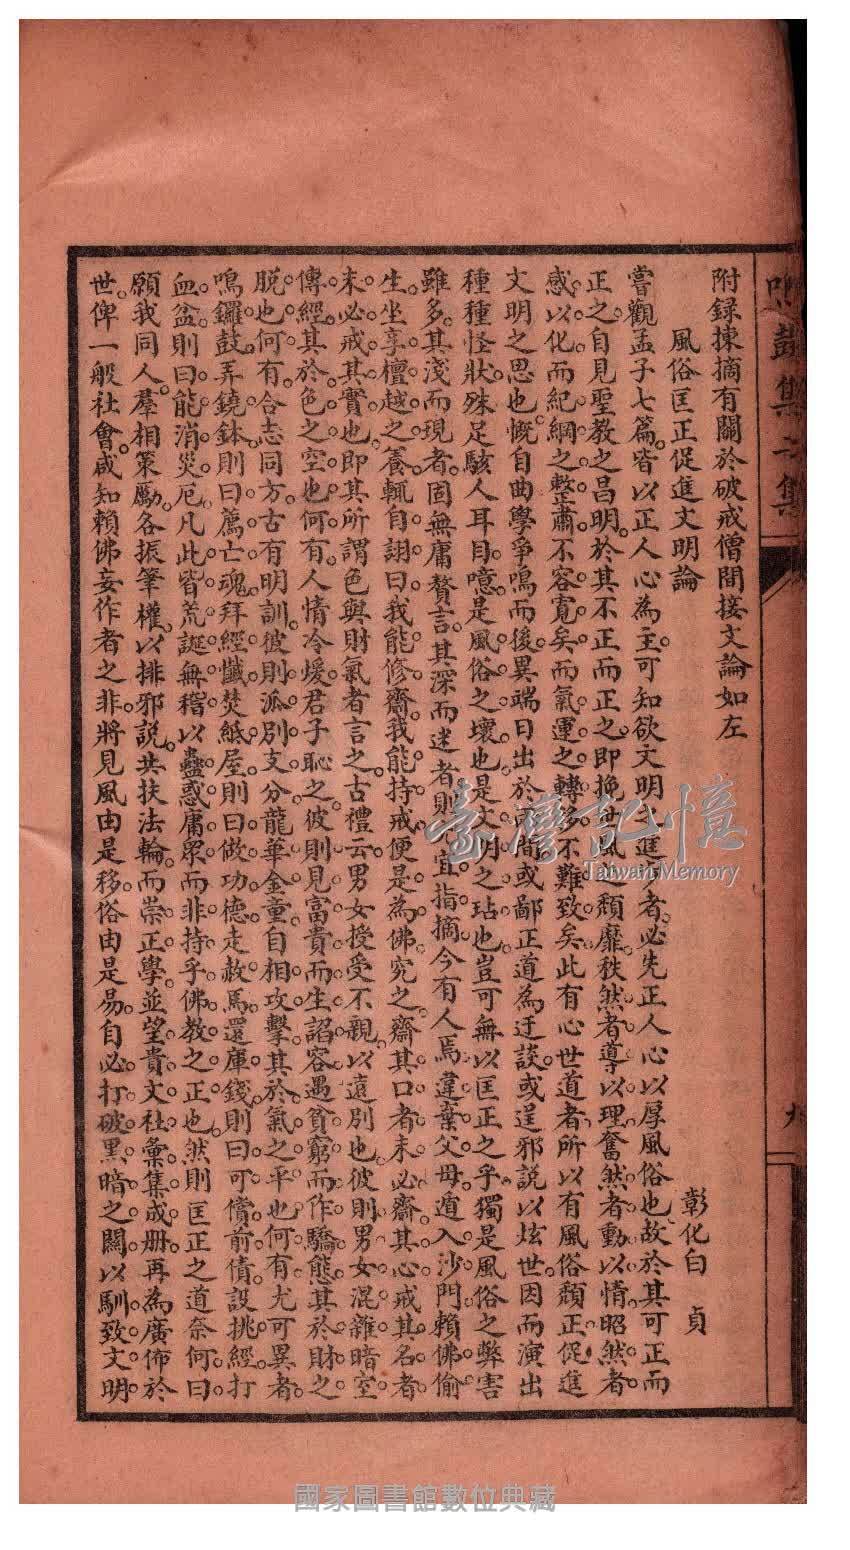 附録揀摘有關於破戒僧間接文論如左
風俗匡正促進文明論
彰化白 貞
嘗觀孟子七篇。皆以正人心為主。可知欲文明之進步者。必先正人心以厚風俗也。故於其可正而
正之。自見聖教之昌明。於其不正而正之。即挽世風之頹靡。秩然者導以理。奮然者動以情。昭然者
感以化。而紀綱之整肅。不容寬矣。而氣運之轉移。不難致矣。此有心世道者。所以有風俗頹正。促進
文明之思也。慨自曲學爭鳴。而後異端日出於其間。或鄙正道為迂談。或逞邪說以炫世。因而演出
種種怪狀。殊足駭人耳目。噫。是風俗之壞也。是文明之玷也。豈可無以匡正之乎。獨是風俗之弊害
雖多。其淺而現者。固無庸贅言。其深而迷者。則宜指摘。今有人焉。違棄父母。遁入沙門。賴佛偷
生。坐享檀越之養。輒自詡曰。我能修齋。我能持戒。便是為佛。究之齋其口者。未必齋其心。戒其名者。
未必戒其實也。即其所謂色與財氣者言之。古禮云。男女授受不親。以遠別也。彼則男女混雜。暗室
傳經。其於色之空也何有。人情冷煖。君子恥之。彼則見富貴而生諂容。遇貧窮而作驕態。其於財之
脫也何有。合志同方。古有明訓。彼則派別支分。龍華金童。自相攻擊。其於氣之平也何有。尤可異者。
鳴鑼鼓。弄鐃鉢。則曰薦亡魂。拜經懺。焚紙屋。則曰做功德。走赦馬。還庫錢。則曰可償前債。設挑經。打
血盆。則曰能消災厄。凡此皆荒誕無稽。以蠱惑庸眾。而非持乎佛教之正也。然則匡正之道奈何。曰
願我同人。羣相策勵。各振筆權。以排邪說。共扶法輪。而崇正學。並望貴文社。彙集成册。再為廣佈於
世。俾一般社會。咸知賴佛妄作者之非。將見風由是移。俗由是易。自必打破黑暗之關。以馴致文明
鼓集二集
九
臺灣記憶
Taiwan Memory
國家圖書館數位典藏